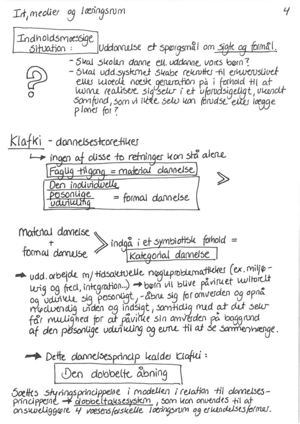 It, medier og læringsrum 4
Indholdsmæssige
situation:
Uddannelse et spørgsmål om sigte og formål.
- Skal skolen danne ell. uddanne vores børn?
- Skal udd.systemet skabe rekrutter til erhvervslivet
eller klæde næste generation på i forhold til at
kunne realisere sig selv i et uforudsigeligt, ukendt
samfund, som vi ikke selv kan forudse eller lægge
planer for?
?
Klafki - dannelsesteoretiker
→ ingen af disse to retninger kan stå alene
Faglig tilgang = material dannelse
Den individuelle
personlige
udvikling
= formal dannelse
Material dannelse
+
formal dannelse
indgå i et symbiotisk forhold =
Kategorial dannelse
→ udd. arbejde m/ tidsaktuelle nøgleproblematikker (ex. miljø,
krig og fred, integration..) → børn vil blive påvirket kulturelt
og udvikle sig personligt, - åbne sig for omverden og opnå
nødvendig viden og indsigt, samtidig med at det selv
får mulighed for at påvirke sin omverden på baggrund
af den personlige udvikling og evne til at se sammenhænge.
→ Dette dannelsesprincip kalder Klafki:
Den dobbelte åbning
Sættes styringsprincipperne i modellen i relation til dannelses-
principperne → dobbeltaksesystem, som kan anvendes til at
anskueliggøre 4 væsensforskelle læringsrum og erkendelsesformer.